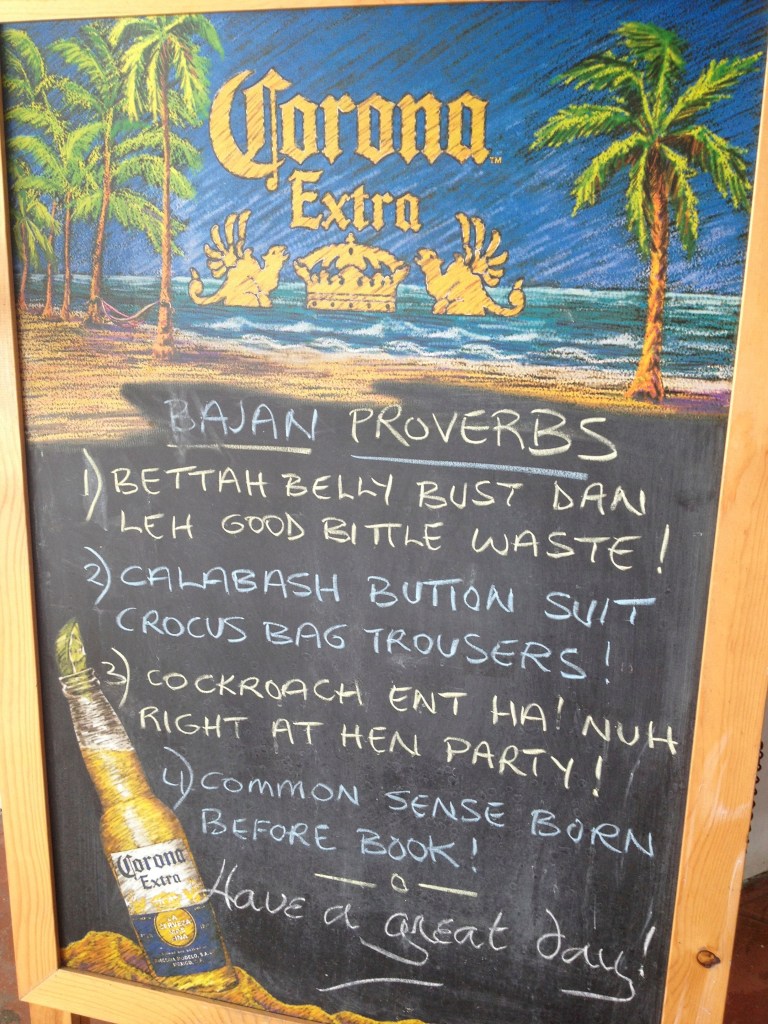 Corona
Extra
BAJAN PROVERBS
1) BETTAH BELLY BUST DAN
LEH GOOD BITTLE WASTE!
2) CALABASH BUTTON SUIT
CROCUS BAG TROUSERS!
3) COCKROACH ENT HA! NUH
RIGHT AT HEN PARTY!
4) COMMON SENSE BORN
BEFORE BOOK!
Have a great day!
Corona
Extra
LA
CERVEZA